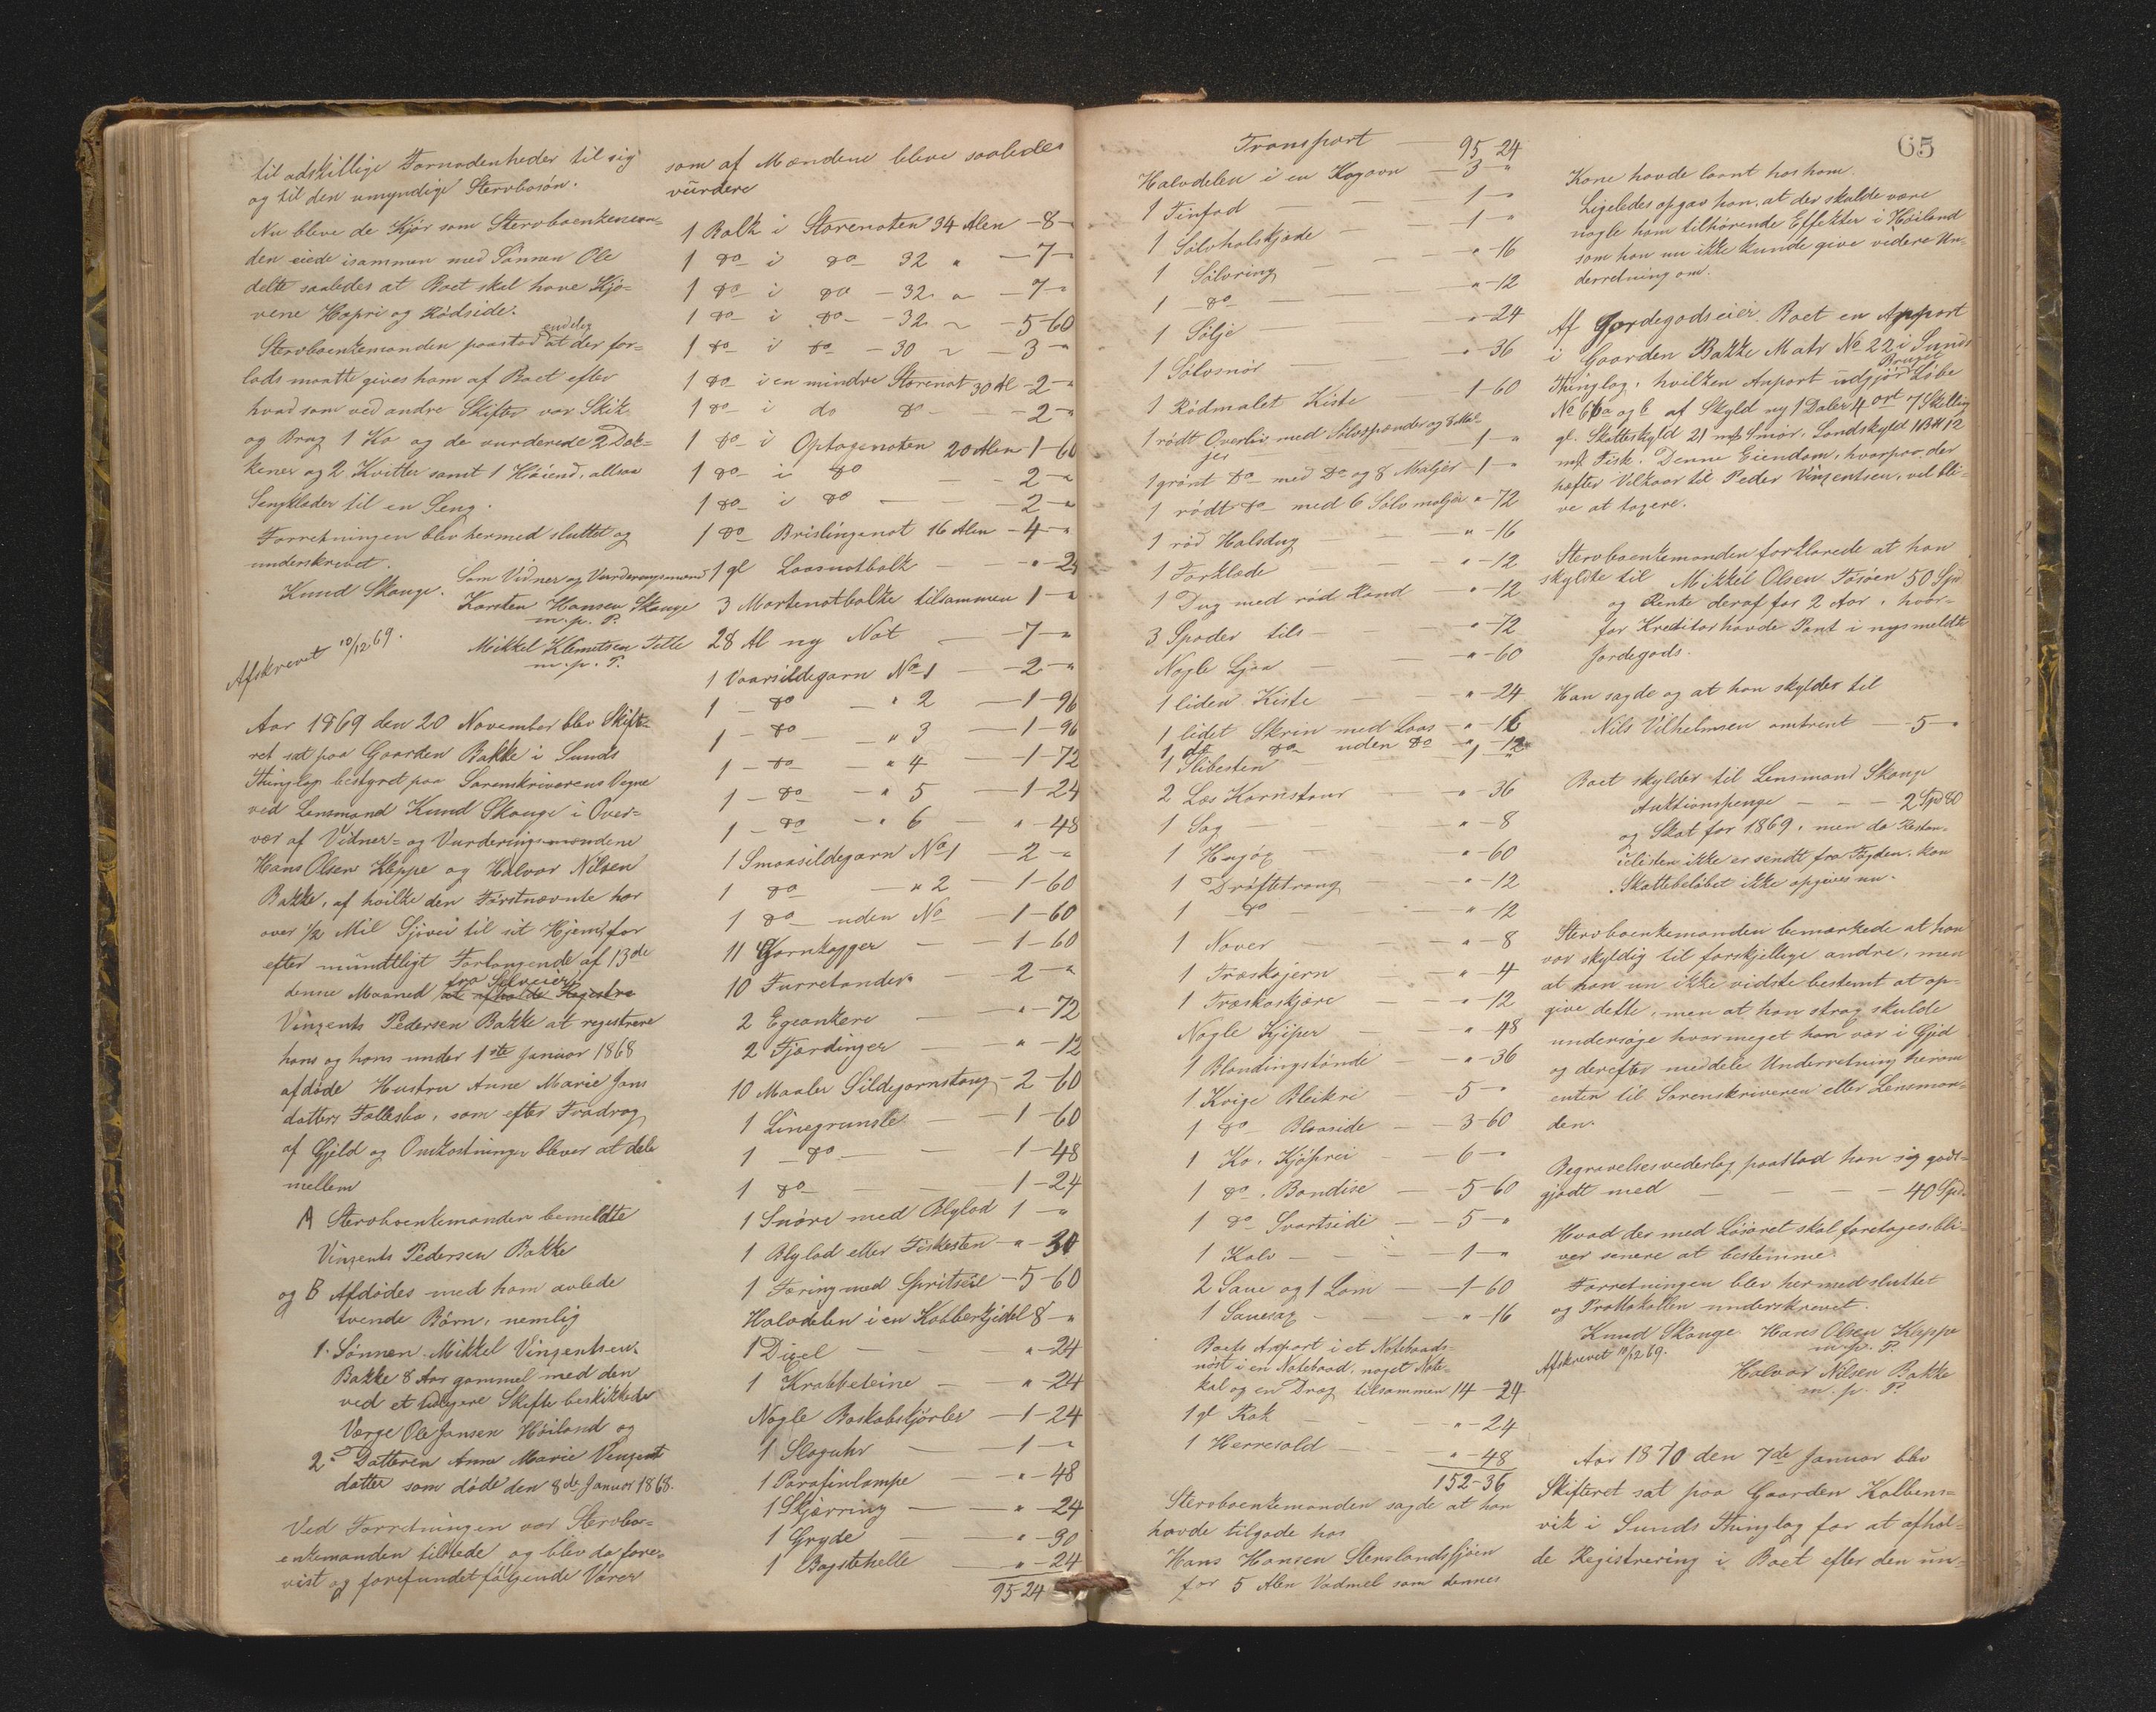 til adskillige Fornødenheder til sig
og til den umyndige Stervbosøn.
Nu bleve de Kjør som Stervboenkeman-
den eiede isammen med Sønnen Ole
delte saaledes at Boet skal have Kjø-
rene Hopri og Rødside.
Stervboenkemanden paastod endelig at der for-
lods maatte gives ham af Boet efter
hvad som ved andre Skifter var Skik
og Brug 1 Ko og de vurderede 2 Dæk-
kener og 2 Kvitter samt 1 Høiend, altsaa
Sengklæder til en Seng.
Forretningen blev hermed sluttet og
underskrevet.
Knud Skauge. Som Vidner og Vurderingsmænd
Karsten Hansen Skauge
m. p. P.
Mikkel Klemetsen Telte
m. p. P.
Afskrevet 10/12 69.
Aar 1869 den 20 November blev Skifte-
ret sat paa Gaarden Bakke i Sunds
Thinglag bestyret paa Sorenskriverens Vegne
ved Lensmand Knud Skauge i Over-
vær af Vidner- og Vurderingsmændene
Hans Olsen Kleppe og Halvor Nilsen
Bakke, af hvilke den Førstnævnte har
over 1/2 Mil Sjøvei til sit Hjem, for
efter mundtligt Forlangende af 13de
denne Maaned fra Selveier at afholde Registre
Vinzents Pedersen Bakke at registrere
hans og hans under 1ste Januar 1868
afdøde Hustru Anne Marie Jans
datters Fællesbo, som efter Fradrag
af Gjeld og Omkostninger bliver at dele
mellem
A Stervboenkemanden bemeldte
Vinzents Pedersen Bakke
og B Afdødes med ham avlede
tvende Børn, nemlig
1. Sønnen Mikkel Vinzentsen
Bakke 8 Aar gammel med den
ved et tidligere Skifte beskikkede
Værge Ole Jansen Høiland og
2. Datteren Anne Marie Vinzents
datter som døde den 8de Januar 1868.
Ved Forretningen var Stervbo-
enkemanden tilstede og blev da fore-
vist og forefundet følgende Varer
som af Mændene bleve saaledes
vurdere
1 Balk i Storenoten 34 Alen - 8 -
1 do i do 32 " - 7 -
1 do i do - 32 " - 7 -
1 do i do - 32 " - 5-60
1 do i do - 30 " - 3 -
1 do i en mindre Storenot 30 Al - 2 - "
1 do i do do - 2 -
1 do i Optagenoten 20 Alen - 1-60
1 do i do - 2 - "
1 do i do - 2 - "
1 do Brislinganot 16 Alen - 4 - "
1 gl Laasnotbalk - " - 24
3 Mortenotbalke tilsammen 1 - "
28 Al ny Not - 7 - "
1 Vaarsildegarn No 1 - 2 - "
1 - do - " 2 - 1-96
1 - do - " 3 - 1-96
1 - do - " 4 - 1-72
1 - do - " 5 - 1-24
1 - do - " 6 - " - 48
1 Smaasildegarn No 1 - 2 - "
1 do - " 2 - 1-60
1 do - uden No - 1-60
11 Garnkagger - 1-60
10 Furretønder - 2 - "
2 Egeankere - " - 72
2 Fjerdinger - " - 12
10 Maaler Sildegarnstoug - 2-60
1 Linegrunsle - 1-60
1 - do - 1-48
1 do - 1-24
1 Snøre med Blylod 1 - "
1 Blylod eller Fiskesten - " - 30
1 Færing med Spritseil - 5-60
Halvdelen i en Kobberkjedel 8 - "
1 Dixel - " - 24
1 Krabbeteine - " - 24
Nogle Baskabskjørler - 1-24
1 Slaguhr - 1 - "
1 Parafinlampe - " - 48
1 Skjærring - " - 24
1 Gryde - " - 90
1 Bagstehelle - " - 24
95-24
65
Transport - 95-24
Halvdelen i en Kogovn - 3 - "
1 Tinfad - 1 - "
1 Sølvhalskjæde - 1 - "
1 Sølvring - " - 16
1 do - " - 12
1 Sølje - " - 24
1 Sølvsnor - " - 36
1 Rødmalet Kiste - 1-60
1 rødt Overliv med Sølvspænder og
1 - "
1 grønt do - med do og 8 Maljer - 1 - "
1 rødt do - med 6 Sølvmaljer " - 72
1 rød Halsdug - " - 16
1 Forklæde - " - 12
1 Dug med rød Rand - " - 12
3 Spader tils - " - 72
Nogle Ljaa - " - 60
1 liden Kiste - " - 24
1 lidet Skrin med Laas - " - 16
1 do do - uden do - " - 12
1 Slibesten - 1 - "
2 Læs Kornstaur - " - 36
1 Sag - " - 8
1 Hugøx - " - 60
1 Drøftetraug - " - 12
1 do - " - 12
1 Naver - " - 8
1 Træskojern - " - 4
1 Træskoskjære - " - 12
Nogle Kjiper - " - 48
1 Blandingstønde - " - 36
1 Kvige Bleikri - 5 - "
1 do - Blaaside - 3-60
1 Ko. Kjøprei - 6 - "
1 do. Bandise - 5-60
1 do Svartside - 5 - "
1 Kalv - 1 - "
2 Saue og 1 Lam - 1-60
1 Sauesax - " - 16
Boets Anpart i et Notebaads-
nøst i en Notebaad, noget Note-
kal og en Drag tilsammen 14-24
1 gl Rok - " - 24
1 Herresold - " - 48
152-36
Stervboenkemanden sagde at han
havde tilgode hos
Hans Hansen Stenslandsfjøen
for 5 Alen Vadmel som dennes
Kone havde laant hos ham.
Ligeledes opgav han, at der skulde være
nogle ham tilhørende Effekter i Høiland
som han nu ikke kunde give videre Un-
derretning om.
Af Jordegods eier Boet en Anpart
i Gaarden Bakke Matr No 22 i Sunds
Thinglag, hvilken Anpart udgjør Bruget Løbe
No 66a og b af Skyld ny 1 Daler 4 ort 7 Skilling
gl. Skatteskyld 21 mk Smør, Landskyld
mk Fisk. Denne Eiendom, hvorpaa der
hæfter Vilkaar til Peder Vinzentsen, vil bli-
ve at taxere.
Stervboenkemanden forklarede at han
skyldte til Mikkel Olsen Tøsøen 50 Spd
og Rente deraf for 2 Aar, hvor-
for Kreditor havde Pant i nysmeldte
Jordegods.
Han sagde og at han skylder til
Nils Vilhelmsen omtrent - 5 - "
Boet skylder til Lensmand Skauge
Auktionspenge - - - 2 Spd 80
og Skat for 1869, men da Restan-
celisten ikke er sendt fra Fogden, kan
Skattebeløbet ikke opgives nu.
Stervboenkemanden bemærkede at han
var skyldig til forskjellige andre, men
at han nu ikke vidste bestemt at op-
give dette, men at han strax skulde
undersøge hvormeget han var i Gjeld
og derefter meddele Underretning herom
enten til Sorenskriveren eller Lensman-
den.
Begravelsesvederlag paastod han sig godt-
gjødt med - - - - 40 Spd.
Hvad der med Løsøret skal foretages, bli-
ver senere at bestemme.
Forretningen blev hermed sluttet
og Protokollen underskrevet.
Knud Skauge. Hans Olsen Kleppe
m. p. P.
Afskrevet 10/12 69.
Halvor Nilsen Bakke
m. p. P.
Aar 1870 den 7de Januar blev
Skifteret sat paa Gaarden Kolbens-
vik i Sunds Thinglag for at afhol-
de Registrering i Boet efter den un-